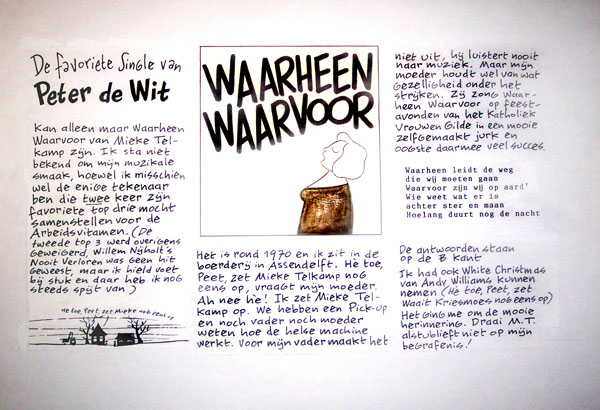 De favoriete Single van
Peter de Wit
Kan alleen maar Waarheen
Waarvoor van Mieke Tel-
kamp zijn. Ik sta niet
bekend om mijn muzikale
smaak, hoewel ik misschien
wel de enige tekenaar
ben die twee keer zijn
favoriete top drie mocht
samenstellen voor de
Arbeidsvitamen. (De
tweede top 3 werd overigens
geweigerd, Willem Nijholt's
Nooit Verloren was geen hit
geweest, maar ik hield voet
bij stuk en daar heb ik nog
steeds spijt van)
Hè toe, Peet, zet Mieke nog eens op
WAARHEEN
WAARVOOR
Het is rond 1970 en ik zit in de
boerderij in Assendelft. Hè toe,
Peet, zet Mieke Telkamp nog
eens op, vraagt mijn moeder.
Ah nee hè! Ik zet Mieke Tel-
kamp op. We hebben een Pick-up
en noch vader noch moeder
weten hoe de helse machine
werkt. Voor mijn vader maakt het
niet uit, hij luistert nooit
naar muziek. Maar mijn
moeder houdt wel van wat
gezelligheid onder het
strijken. Zij zong Waar-
heen Waarvoor op feest-
avonden van het Katholiek
Vrouwen Gilde in een mooie
zelfgemaakt jurk en
oogste daarmee veel succes.
Waarheen leidt de weg
die wij moeten gaan
Waarvoor zijn wij op aard'
Wie weet wat er is
achter ster en maan
Hoelang duurt nog de nacht
De antwoorden staan
op de B kant
Ik had ook White Christmas
van Andy Williams kunnen
nemen (Hè toe, Peet, zet
Wait Kriesmoes nog eens op)
Het ging me om de mooie
herinnering. Draai M.T.
alstublieft niet op mijn
begrafenis!